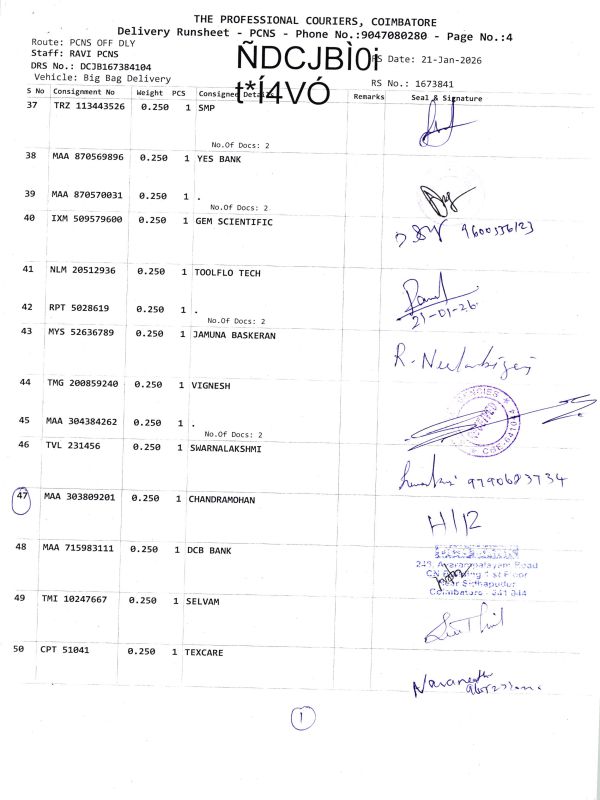 THE PROFESSIONAL COURIERS, COIMBATORE
Delivery Runsheet - PCNS - Phone No.:9047080280 - Page No.:4
Route: PCNS OFF DLY
Staff: RAVI PCNS
DRS No.: DCJB167384104
Vehicle: Big Bag Delivery
ÑDCJBÌ0i
t*Í4VÓ
RS Date: 21-Jan-2026
RS No.: 1673841
S No Consignment No Weight PCS Consignee Details Remarks Seal & Signature
37 TRZ 113443526 0.250 1 SMP
No.Of Docs: 2
38 MAA 870569896 0.250 1 YES BANK
39 MAA 870570031 0.250 1 .
No.Of Docs: 2
40 IXM 509579600 0.250 1 GEM SCIENTIFIC
41 NLM 20512936 0.250 1 TOOLFLO TECH
21-01-26
42 RPT 5028619 0.250 1 .
No.Of Docs: 2
43 MYS 52636789 0.250 1 JAMUNA BASKERAN
44 TMG 200859240 0.250 1 VIGNESH
45 MAA 304384262 0.250 1 .
No.Of Docs: 2
46 TVL 231456 0.250 1 SWARNALAKSHMI
9790683734
47 MAA 303809201 0.250 1 CHANDRAMOHAN
H/12
48 MAA 715983111 0.250 1 DCB BANK
1st Floor
Coimbatore
49 TMI 10247667 0.250 1 SELVAM
50 CPT 51041 0.250 1 TEXCARE
1